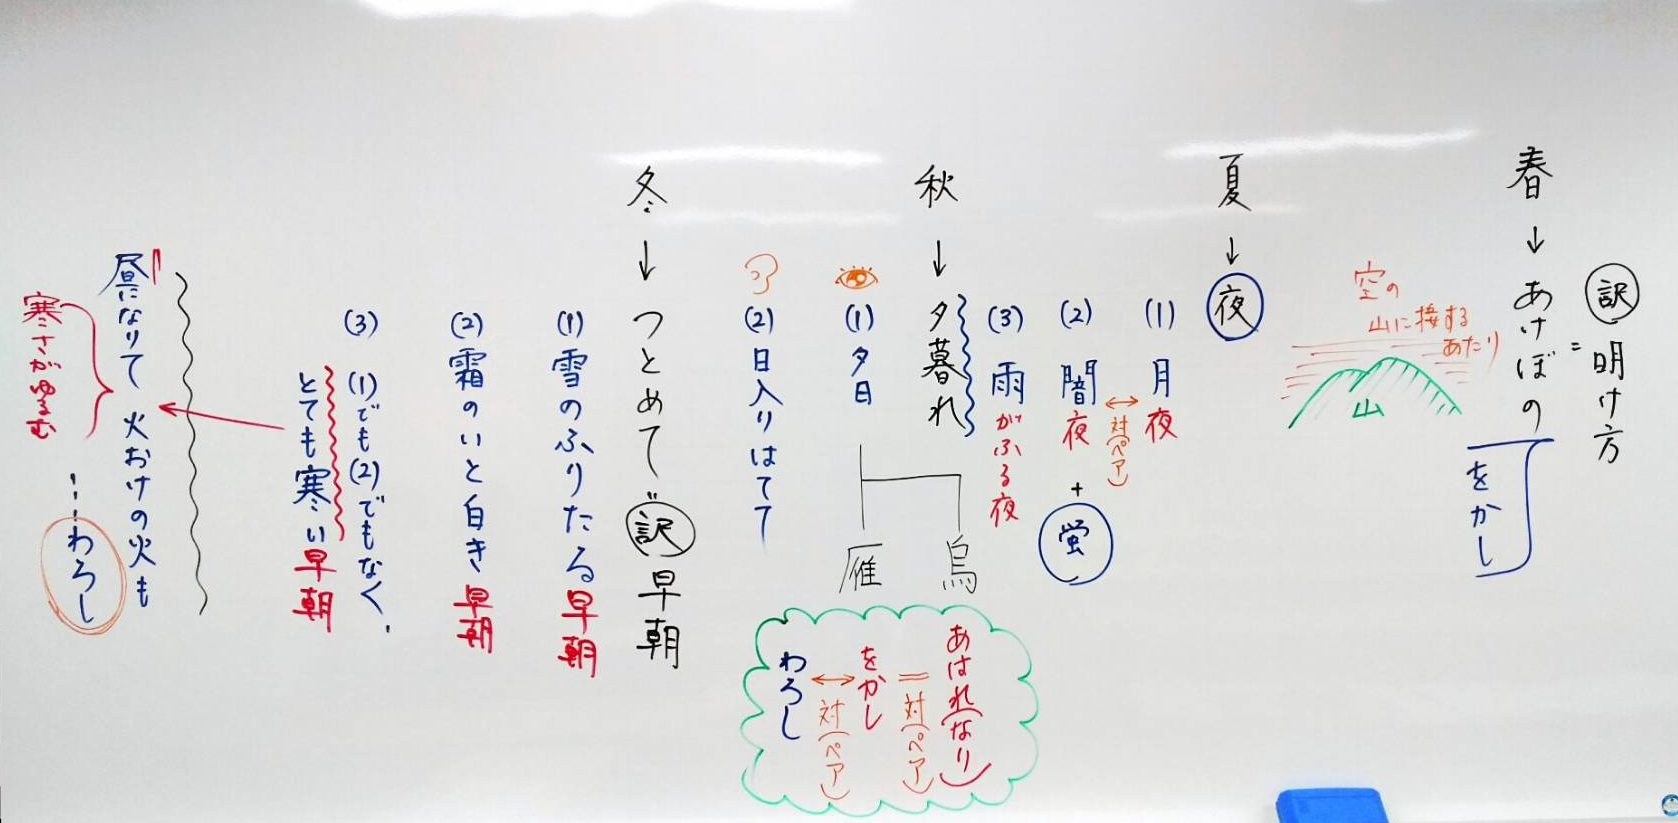 春→あけぼの
訳
=明け方
をかし
空の
山に接する
あたり
山
夏→夜
(1)月夜
↔対(ペア)
(2)闇夜+蛍
(3)雨がふる夜
秋→夕暮れ
(1)夕日
烏
雁
(2)日入りはてて
あはれ(なり)
=対(ペア)
をかし
↔対(ペア)
わろし
冬→つとめて=訳早朝
(1)雪のふりたる早朝
(2)霜のいと白き早朝
(3)(1)でも(2)でもなく、
とても寒い早朝
昼になりて火おけの火も
……わろし
寒さがゆるむ